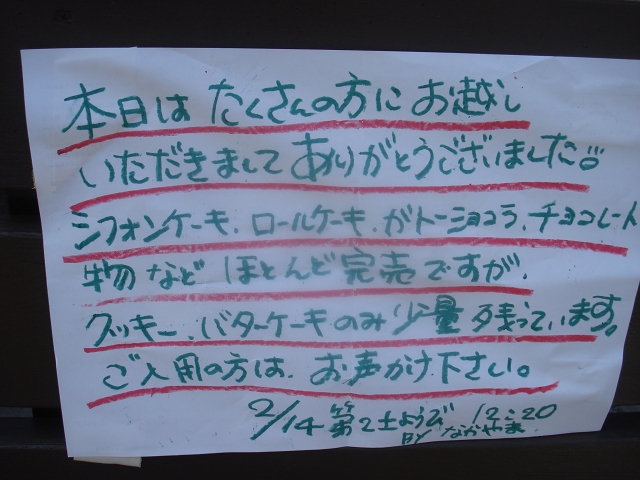 本日は たくさんの方に お越し
いただきまして ありがとうございました。
シフォンケーキ、ロールケーキ、ガトーショコラ、チョコレート
物など ほとんど完売ですが、
クッキー、バターケーキのみ少量 残っています。
ご入用の方は、お声がけ下さい。
2/14 第2土ようび 12:20
BY なかやま